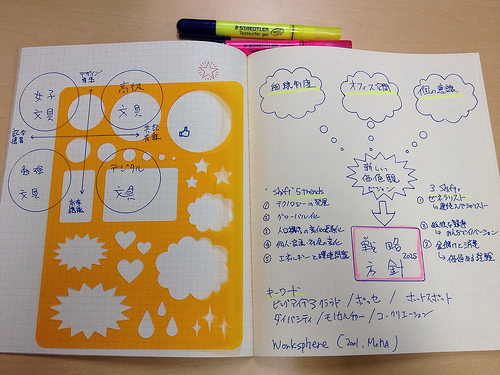 STAEDTLER
Textsurfer gel
デザイン
女子
文具
高級
文具
勉強
文具
デジタル
文具
組織制度
オフィス空間
個の意識
新しい
価値観
"Shift" 5 trends
① テクノロジーの発展
② グローバル化
③ 人口構成の変化と長寿化
④ 個人、家族、社会の変化
⑤ エネルギーと環境問題
3 Shift
① ゼネラリスト
→ 連続スペシャリスト
② 孤独な競争
→ みんなでイノベーション
③ 金儲けと消費
→ 価値ある経験
戦略
方針
2025
キーワード
ビッグアイデアクラウド / ポッセ / ボートスポート
ダイバシティ / モノカルチャー / コ・クリエーション
Worksphere (2001, MoMA)